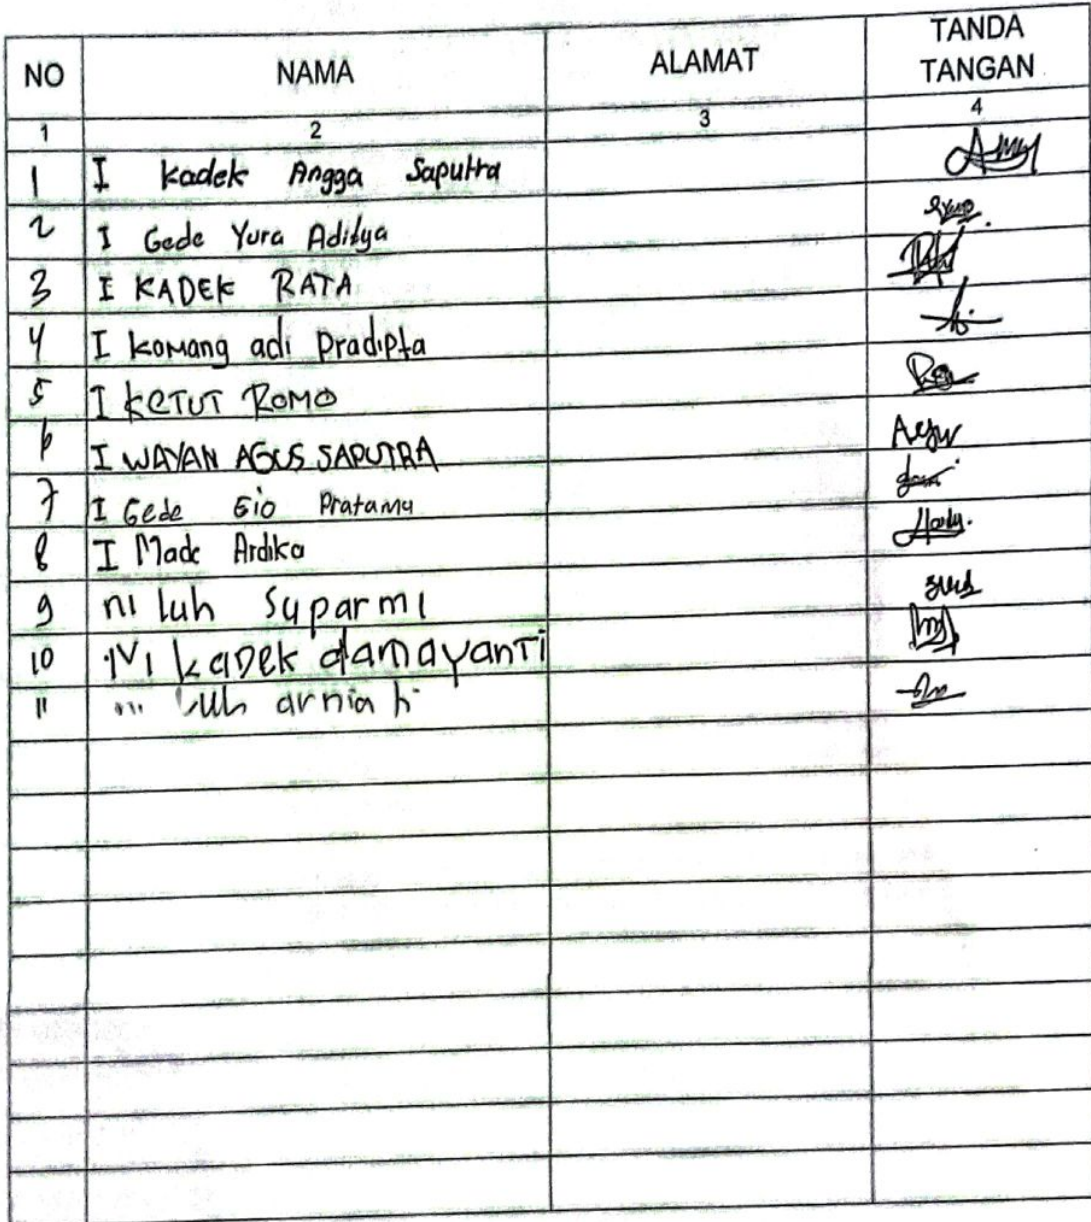 NO NAMA ALAMAT TANDA TANGAN
1 2 3 4
1 I Kadek Angga Saputra
2 I Gede Yura Aditya
3 I KADEK RATA
4 I Komang adi Pradipta
5 I KETUT ROMO
6 I WAYAN AGUS SAPUTRA
7 I Gede Gio Pratama
8 I Made Ardika
9 ni luh Suparmi
10 Ni Kadek damayanTi
11 luh arnia